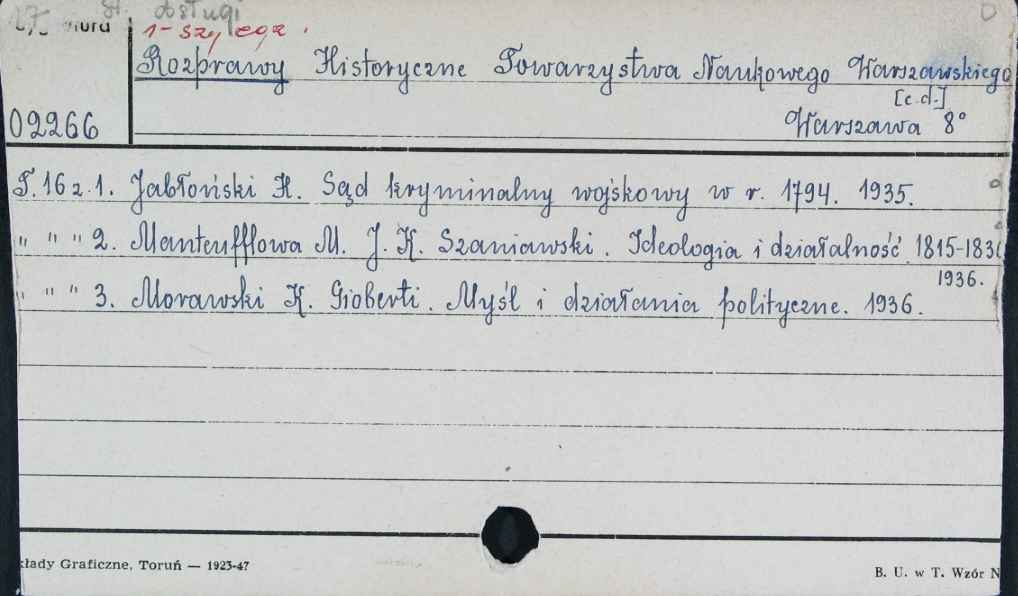 st. obsługi
1-szy egz.
Rozprawy Historyczne Towarzystwa Naukowego Warszawskiego
[c.d.]
02266
Warszawa 8°
T. 16 z. 1. Jabłoński H. Sąd kryminalny wojskowy w r. 1794. 1935.
" " " 2. Manteufflowa M. J. K. Szaniawski. Ideologia i działalność 1815-1830
1936.
" " " 3. Morawski K. Gioberti. Myśl i działania polityczne. 1936.
kłady Graficzne, Toruń — 1923-47
B. U. w T. Wzór N